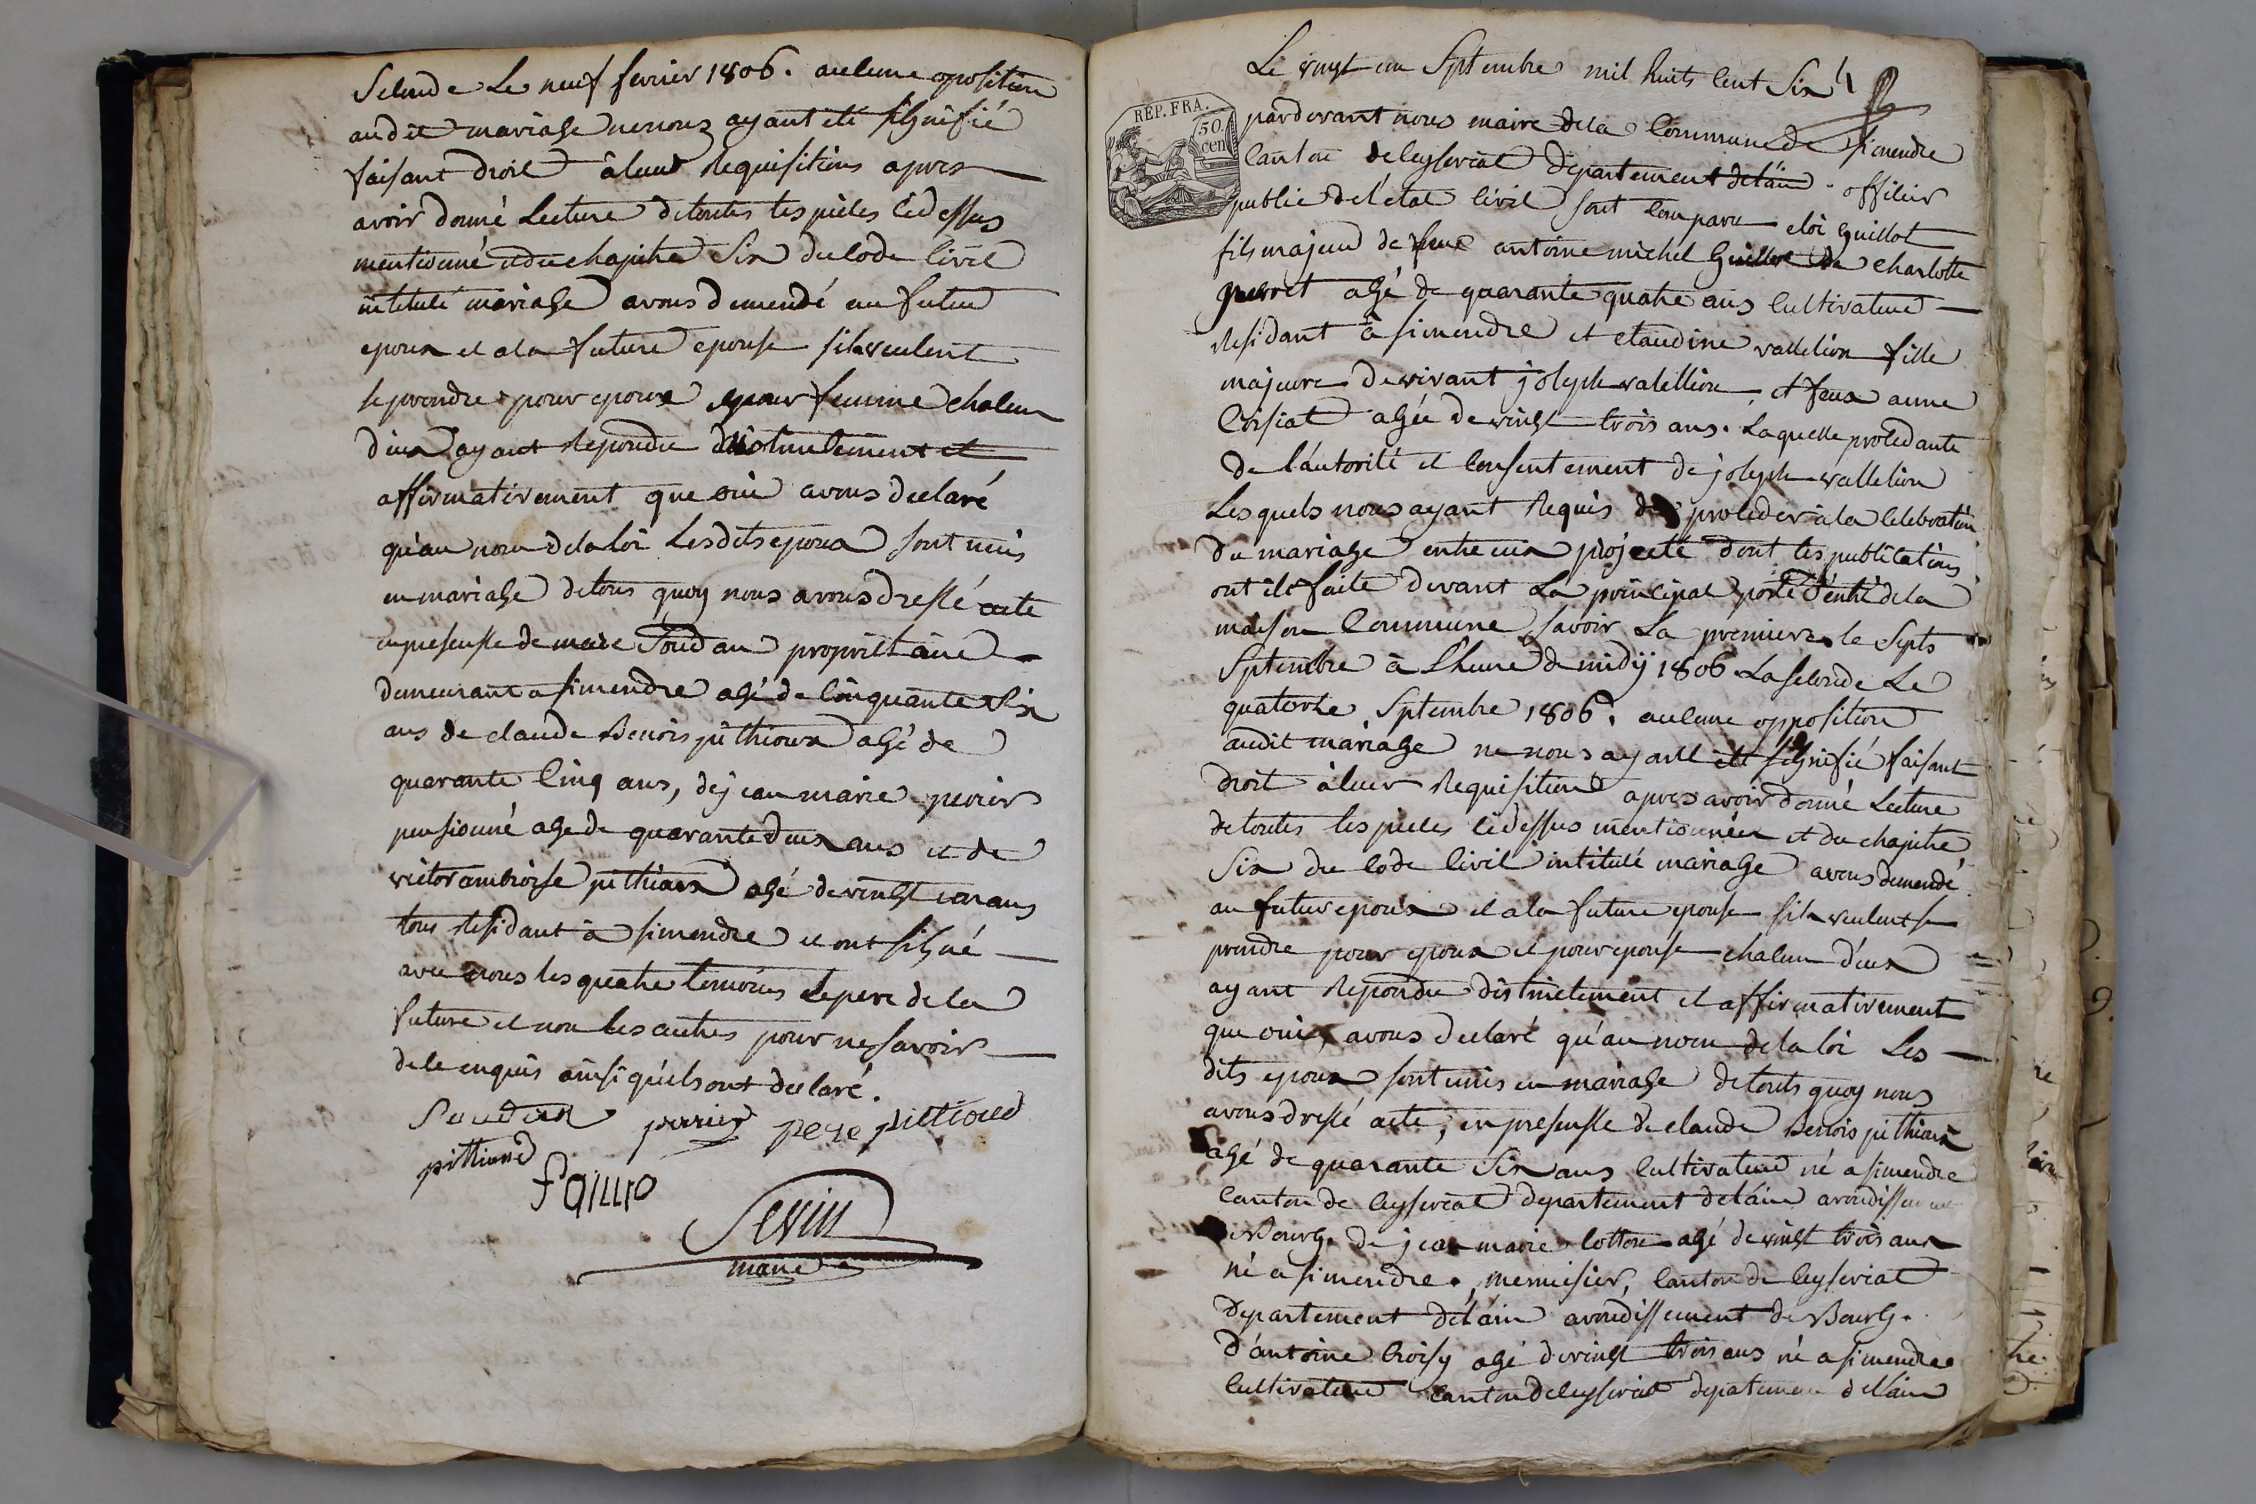 Seconde Le neuf fevrier 1806. aucune oposition
audit mariage ne nous ayant été signifié
faisant droit à leur Requisitions apres
avoir donné Lecture de toutes les pieces cidessus
mentionné et du chapitre Six du Code Civil
intitulé mariage avons demendé au futur
epoux et a la future epouse sils veulent
se prendre pour epoux et pour femme chacun
deux ayant Repondu distinctement et
affirmativement que oui avons declaré
qu'au nom de la loi Lesdits epoux sont unis
en mariage de tous quoy nous avons dressé acte
en presensse de Soudan propriettaire
demeurant a simendre agé de Cinquante Six
ans de claude Benois pithioux agé de
quarante Cinq ans, de jean marie perier
pensionné age de quarante deux ans et de
victor ambroise pithioux agé de vingt un ans
tous Residant à simendre et ont signé
avec nous les quatre temoins et le pere de la
future et non les autres pour ne savoir
de ce enquis ainsi qu'ils ont declaré.
Soudan perrier pere pittioud
pittioud
Sevin
maire
Le vingt un Septembre mil huits Cent Six
REP. FRA.
50 cen
pardevant nous maire de la Commune de simendre
Canton de Ceyseriat Departement de l'ain officier
public de l'état Civil sont Comparu eloi Guillot
fils majeur de feue antoine michel Guillot de Charlotte
agé de quarante quatre ans Cultivateur
Residant à simendre et claudine vallelion fille
majeure de vivant joseph valellion et feux anne
Croisiat agée de vingt trois ans. Laquelle procedante
de l'autorité et Consentement de joseph vallelion
Lesquels nous ayant Requis de proceder a la Celebration
du mariage entre eux projeté dont les publications
ont été faite devant La principal porte d'entré de la
maison Commune, savoir La premiere le Septs
Septembre à L'heure de midÿ 1806 La seconde Le
quatorze Septembre 1806. aucune opposition
audit mariage ne nous ayant été signifié faisant
droit à leur Requisition apres avoir donné Lecture
de toutes les pieces cidessus mentionnées et du chapitre
Six du Code Civil intitulé mariage avons demendé
au futur epoux et a la future epouse sils veulent se
prendre pour epoux et pour epouse chacun d'eux
ayant Repondu distinctement et affirmativement
que oui, avons declaré qu'au nom de la loi Les
dits epoux sont unis en mariage de touts quoy nous
avons dressé acte, en presensse de claude Benois pithioux
agé de quarante Six ans Cultivateur né a simendre
Canton de Ceyseriat departement de l'ain
de Bourg. de jean marie Cotton agé de vingt trois ans
né a simendre, menuisier, Canton de Ceyseriat
Departement de l'ain arondissement de Bourg.
D'antoine Croisy agé de vingt trois ans né a simendre
Cultivateur Canton de Ceyseriat departement de l'ain